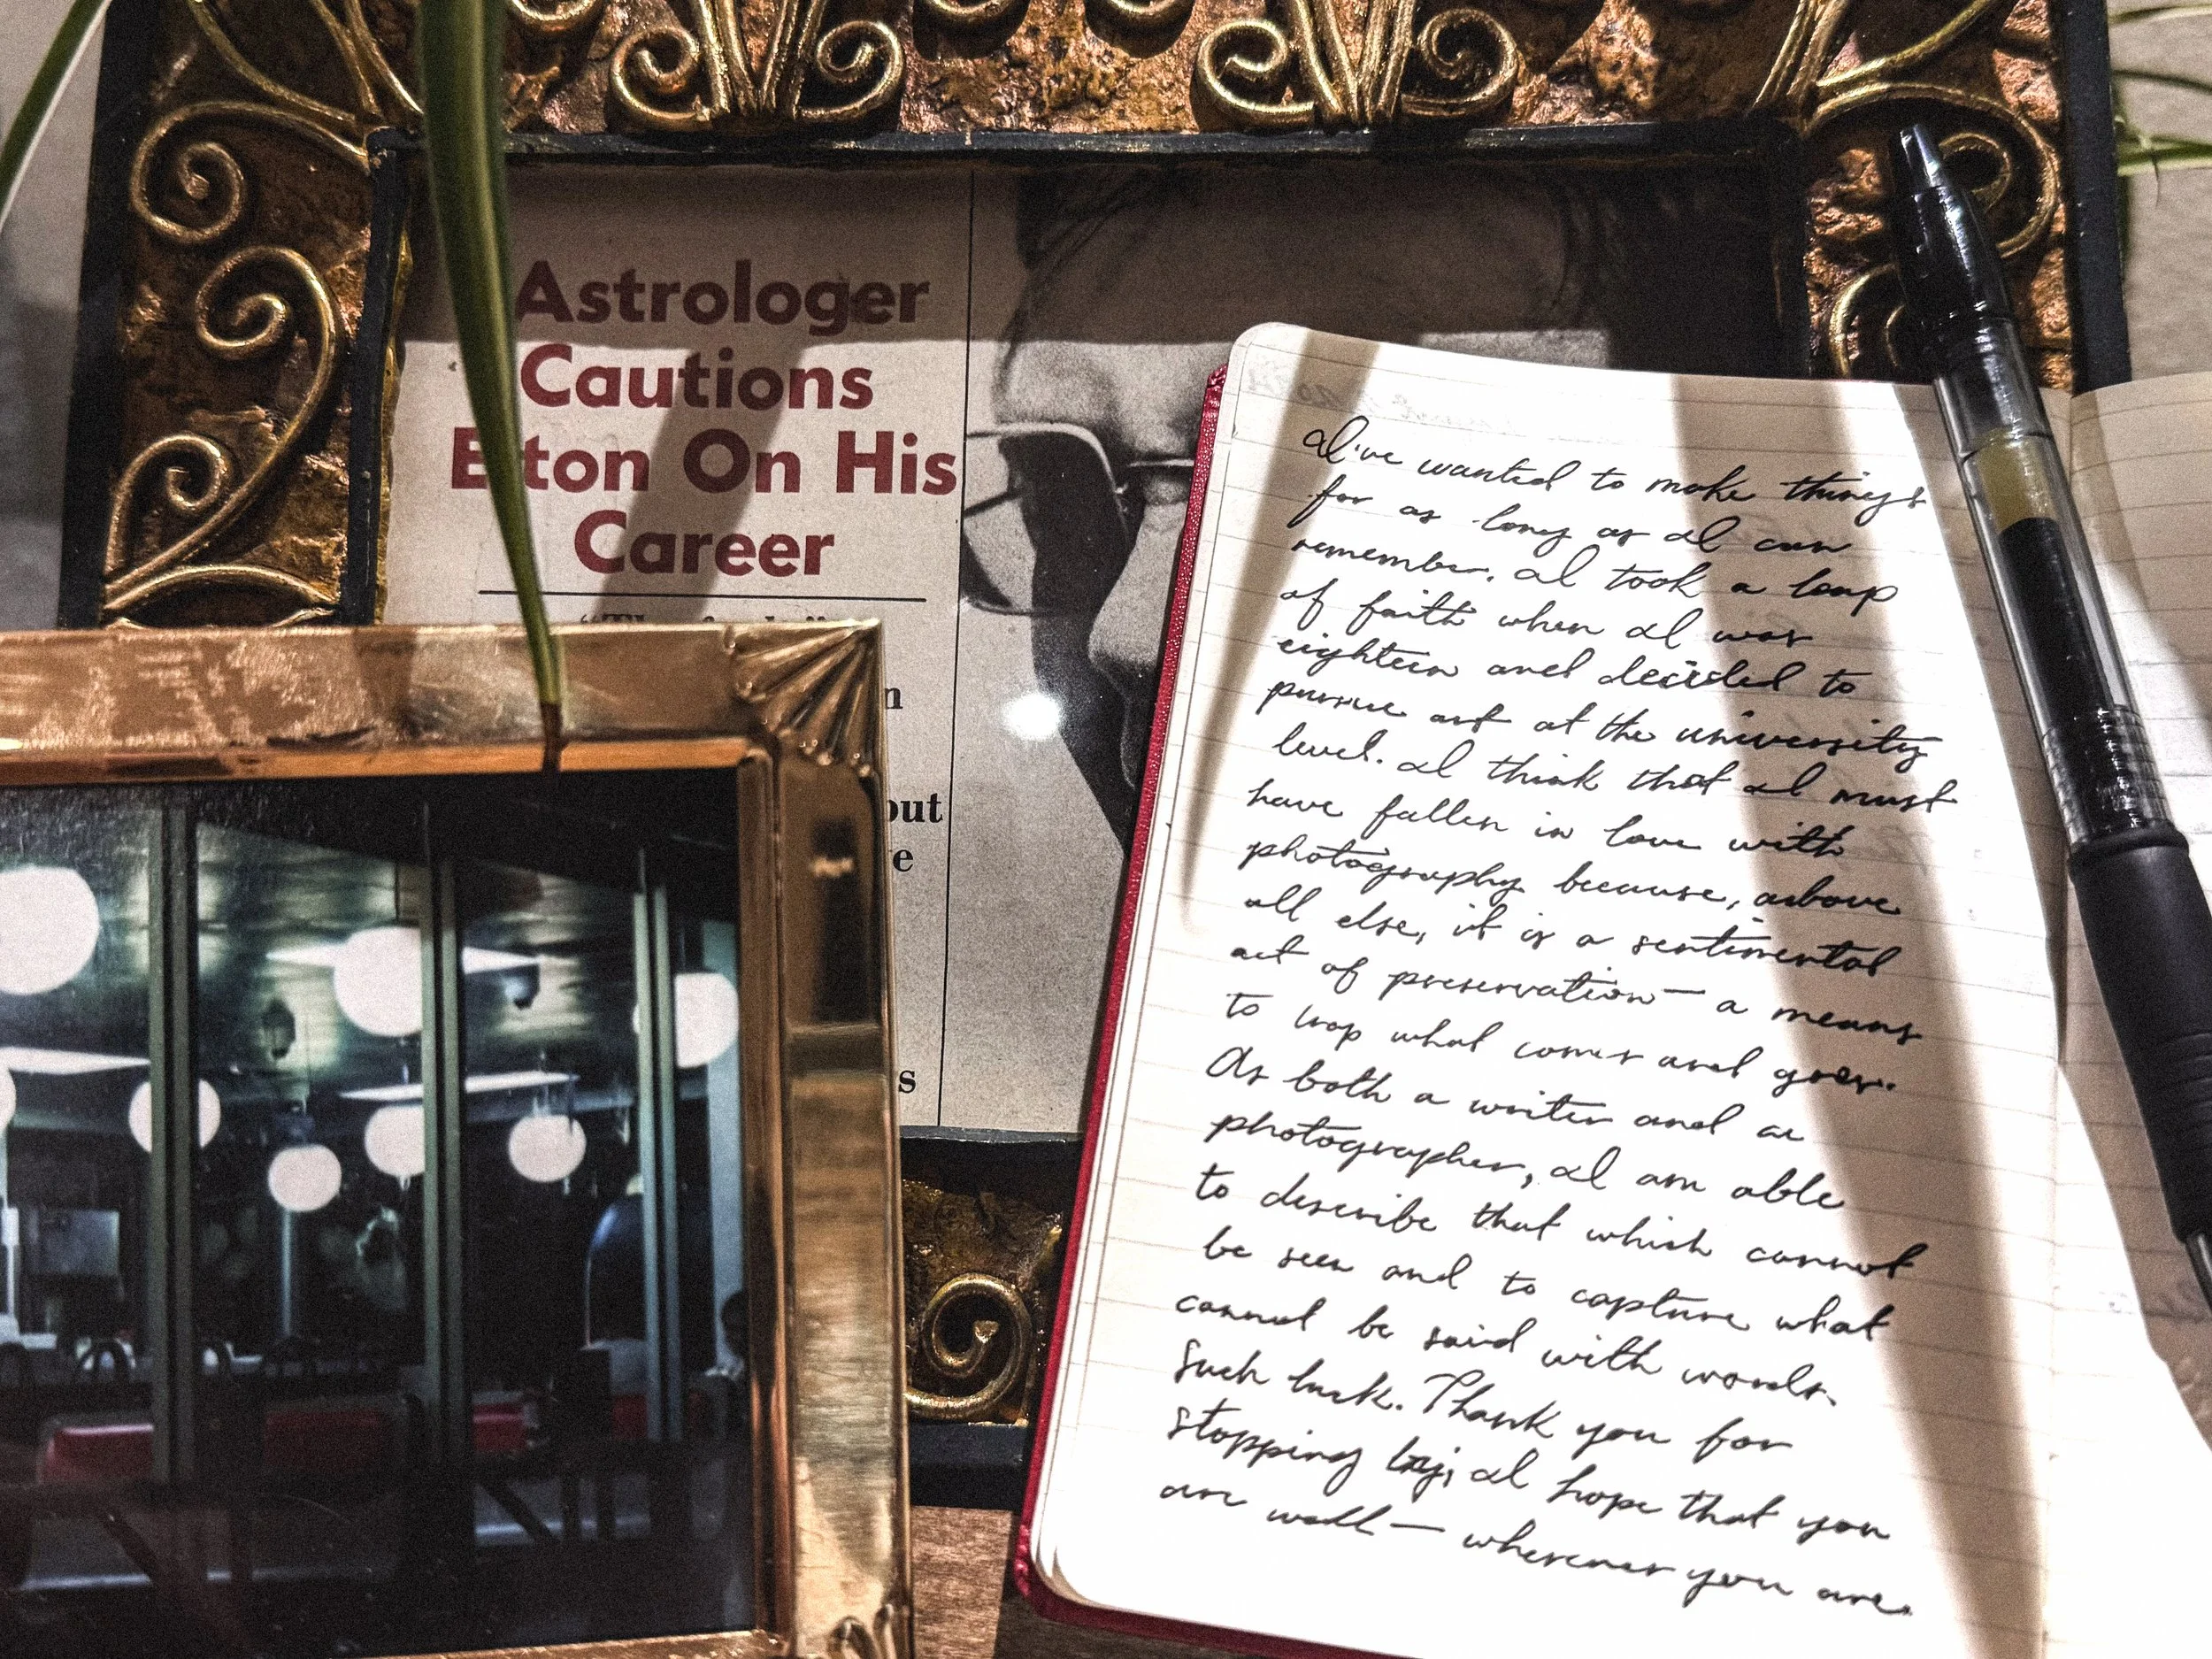 Astrologer
Cautions
Elton On His
Career
n
out
e
s
I've wanted to make things
for as long as I can
remember. I took a leap
of faith when I was
eighteen and decided to
pursue art at the university
level. I think that I must
have fallen in love with
photography because, above
all else, it is a sentimental
act of preservation — a means
to trap what comes and goes.
As both a writer and a
photographer, I am able
to describe that which cannot
be seen and to capture what
cannot be said with words.
Such luck. Thank you for
stopping by; I hope that you
are well — wherever you are.